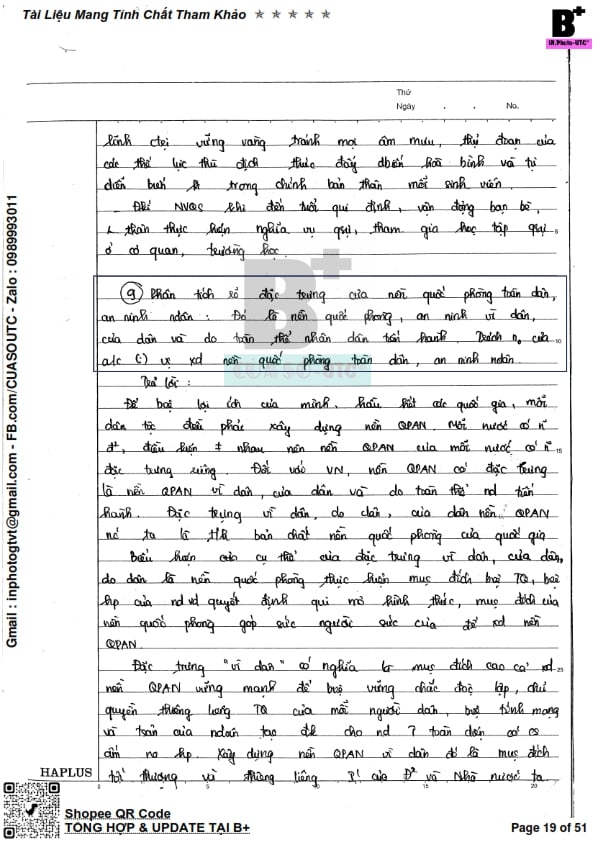 Tài Liệu Mang Tính Chất Tham Khảo ★ ★ ★ ★ ★
B+
IN.Photo-UTC*
Thứ
Ngày . . No.
lĩnh ctrị vững vàng tránh mọi âm mưu, thủ đoạn của
các thế lực thù địch thúc đẩy dbiến hoà bình và tự
diễn biến từ trong chính bản thân mỗi sinh viên.
NVQS khi đến tuổi qui định, vận động bạn bè,
thân thực hiện nghĩa vụ qsự, tham gia học tập qsự
ở cơ quan, trường học.
9 Phân tích rõ đặc trưng của nền quốc phòng toàn dân,
an ninh ndân: Đó là nền quốc phòng, an ninh vì dân,
của dân và do toàn thể nhân dân tiến hành. Trách no của
a/c (:) vs xd nền quốc phòng toàn dân, an ninh ndân.
B+
CUA SO-UTC
Trả lời:
Để bvệ lợi ích của mình. hầu hết các quốc gia, mỗi
dân tộc đều phải xây dựng nền QPAN. Mỗi nước có
điều kiện ≠ nhau nên nền QPAN của mỗi nước có
đặc trưng riêng. Đối với VN, nền QPAN có đặc trưng
là nền QPAN vì dân, của dân và do toàn thể nd tiến
hành. Đặc trưng vì dân, do dân, của dân nền QPAN
nc ta là bản chất nền quốc phòng của quốc gia
Biểu hiện của cụ thể của đặc trưng vì dân, của dân,
do dân là nền quốc phòng thực hiện mục đích bvệ TQ, bvệ
hp của nd và quyết định qui mô hình thức, mục đích của
nền quốc phòng góp sức người sức của để xd nền
QPAN.
Đặc trưng "vì dân" có nghĩa là mục đích cao cả xd
nền QPAN vững mạnh để bvệ vững chắc độc lập, chủ
quyền thiêng liêng TQ của mỗi người dân, bvệ tính mạng
và tsản của ndân tạo đk cho nd toàn diện có cs
ấm no hp. Xây dựng nền QPAN vì dân đó là mục đích
tối thượng và thiêng liêng của Đ² và Nhà nước ta.
5
10
15
25
HAPLUS
0 5 10 15 20
Gmail : inphotogtvt@gmail.com - FB.com/CUASOUTC - Zalo : 0989993011
Shopee QR Code
TỔNG HỢP & UPDATE TẠI B+
Page 19 of 51